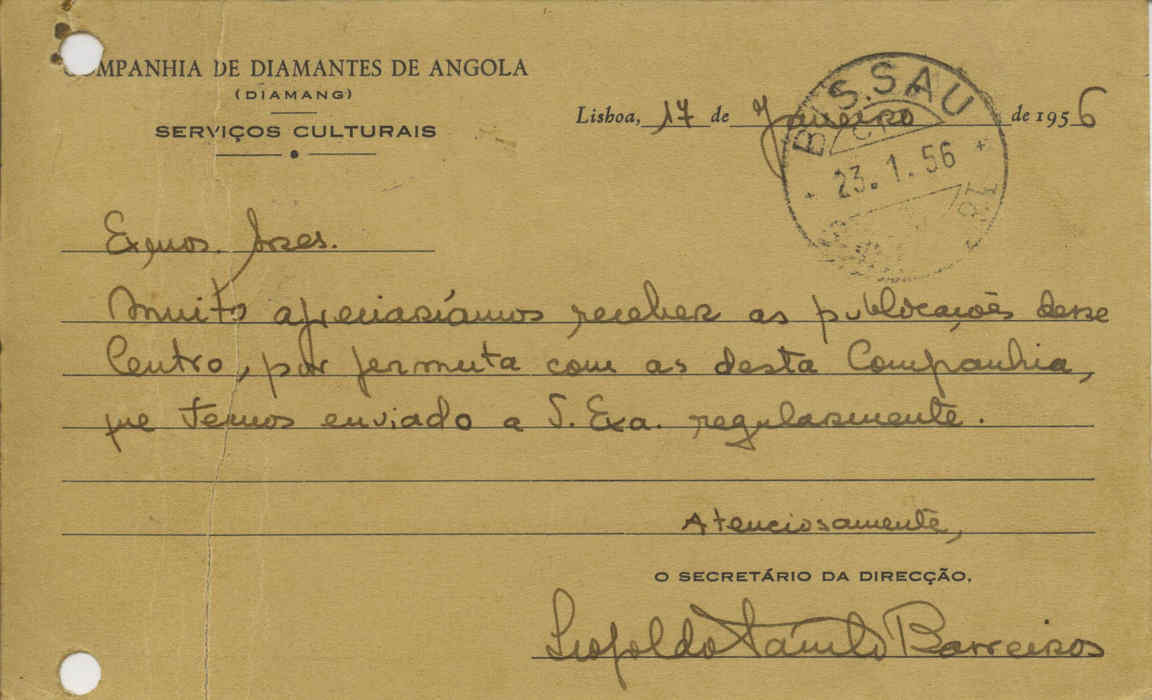 COMPANHIA DE DIAMANTES DE ANGOLA
(DIAMANG)
SERVIÇOS CULTURAIS
Lisboa, 17 de Janeiro de 1956
BISSAU
23.1.56
Exmos. Snres.
Muito apreciaríamos receber as publicações desse
Centro, por permuta com as desta Companhia,
que temos enviado a V. Exa. regularmente.
Atenciosamente,
O SECRETÁRIO DA DIRECÇÃO,
Leopoldo Barreiros